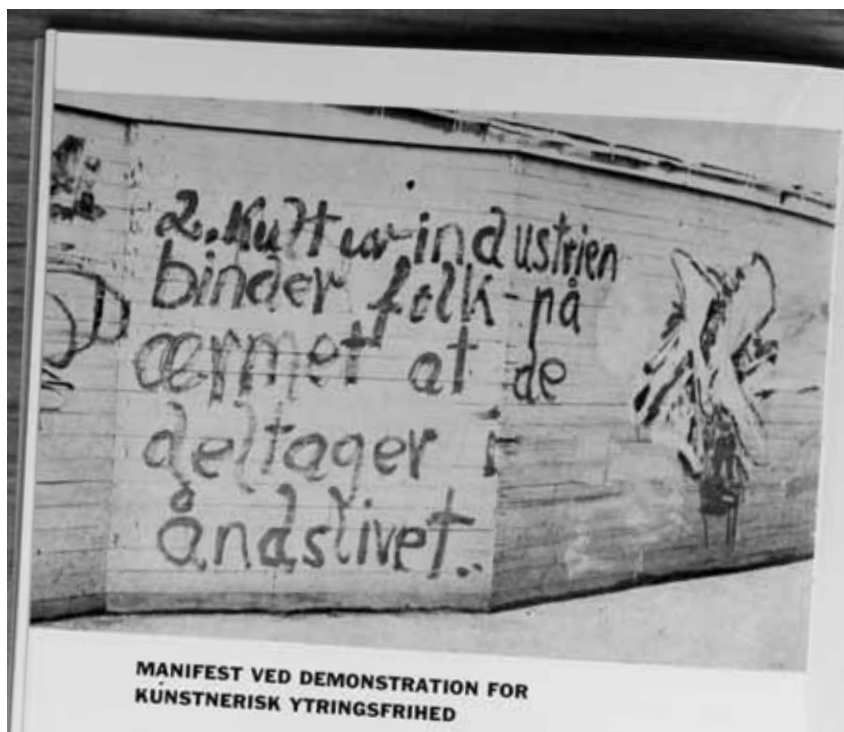 2. Kulturindustrien
binder folk på
ærmet at de
deltager i
åndslivet..
MANIFEST VED DEMONSTRATION FOR
KUNSTNERISK YTRINGSFRIHED